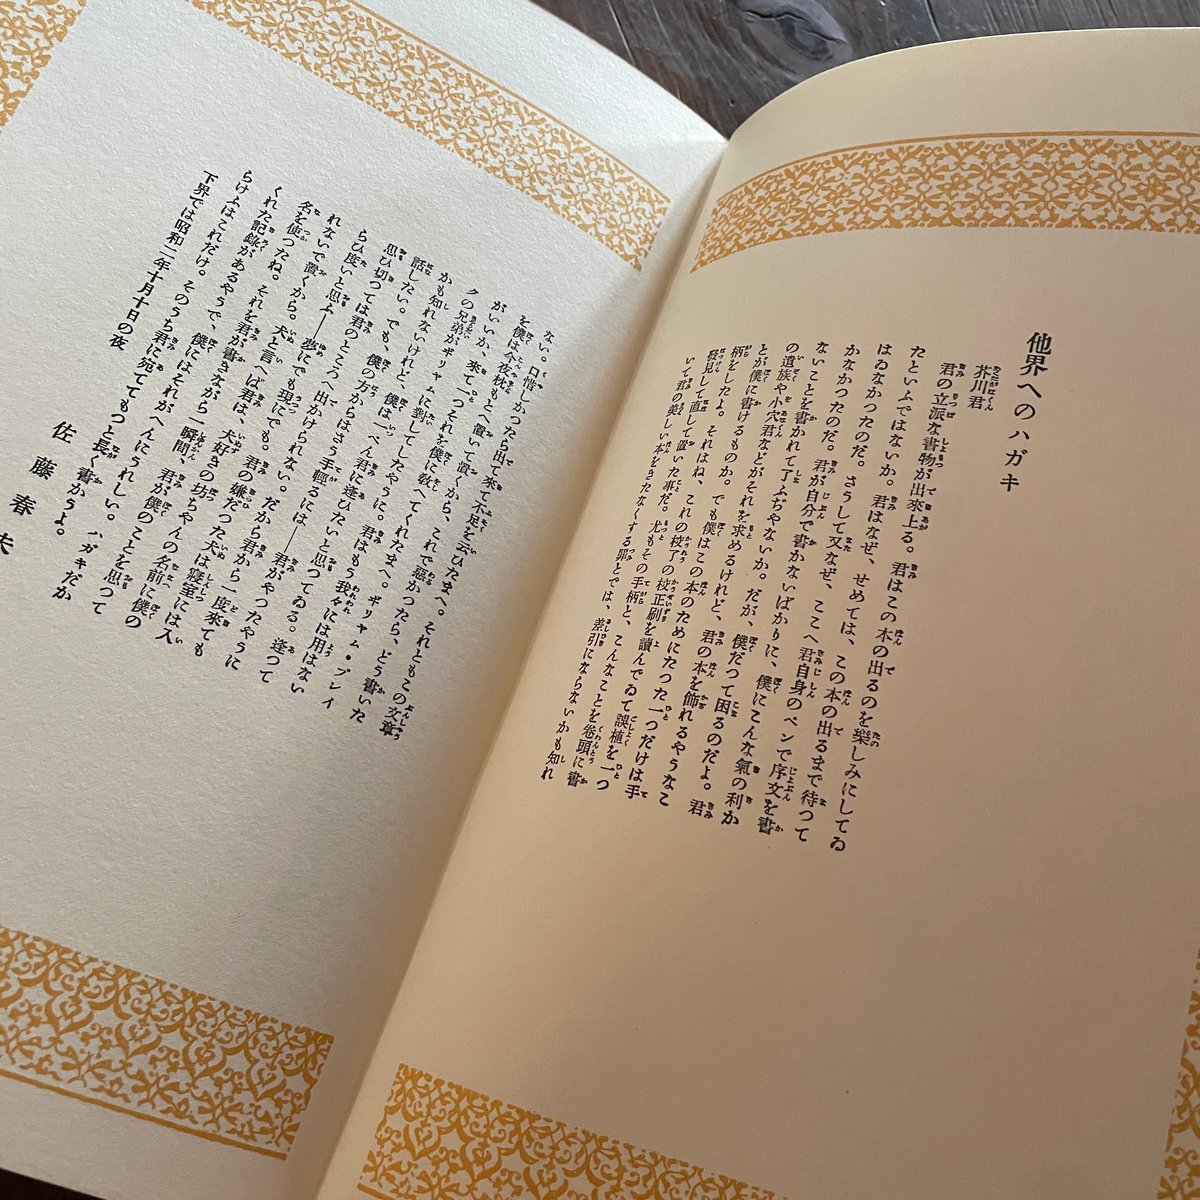 他界へのハガキ
芥川君
君の立派な書物が出來上る。君はこの本の出るのを樂しみにしてゐ
たといふではないか。君はなぜ、せめては、この本の出るまで待つて
はゐなかつたのだ。さうして又なぜ、ここへ君自身のペンで序文を書
かなかつたのだ。君が自分で書かないばかりに、僕にこんな氣の利か
ないことを書かれて了ふぢやないか。だが、僕だつて困るのだよ。君
の遺族や小穴君などがそれを求めるけれど、君の本を飾れるやうなこ
とが僕に書けるものか。でも僕はこの本のためにたつた一つだけは手
柄をしたよ。それはね、これの校了の校正刷を讀んでゐて誤植を一つ
發見して直して置いた事だ。尤もその手柄と、こんなことを卷頭に書
いて君の美しい本をきたなくする罪とでは、差引にならないかも知れ
ない。口惜しかつたら出て來て不足を云ひたまへ。それともこの文章
を僕は今夜枕もとへ置いて置くから、これで惡かつたら、どう書いた
がいいか、來て一つそれを僕に敎へてくれたまへ。ヰリヤム・ブレイ
クの兄弟がヰリヤムに對してしたやうに。君はもう我々には用はない
かも知れないけれど、僕は一ぺん君に逢ひたいと思つてゐる。逢つて
話したい。でも、僕の方からはさう手輕るには――君がやつたやうに
思ひ切つては君のところへ出かけられない。だから君から一度來ても
らひ度いと思ふ――夢にでも現にでも。君の嫌だつた犬は寢室には入
れないで置くから。犬と言へば君は、犬好きの坊ちやんの名前に僕の
名を使つたね。それを君が書きながら一瞬間、君が僕のことを思つて
くれた記錄があるやうで、僕にはそれがへんにうれしい。ハガキだか
らけふはこれだけ。そのうち君に宛ててもつと長く書かうよ。
下界では昭和二年十月十日の夜
佐藤春夫